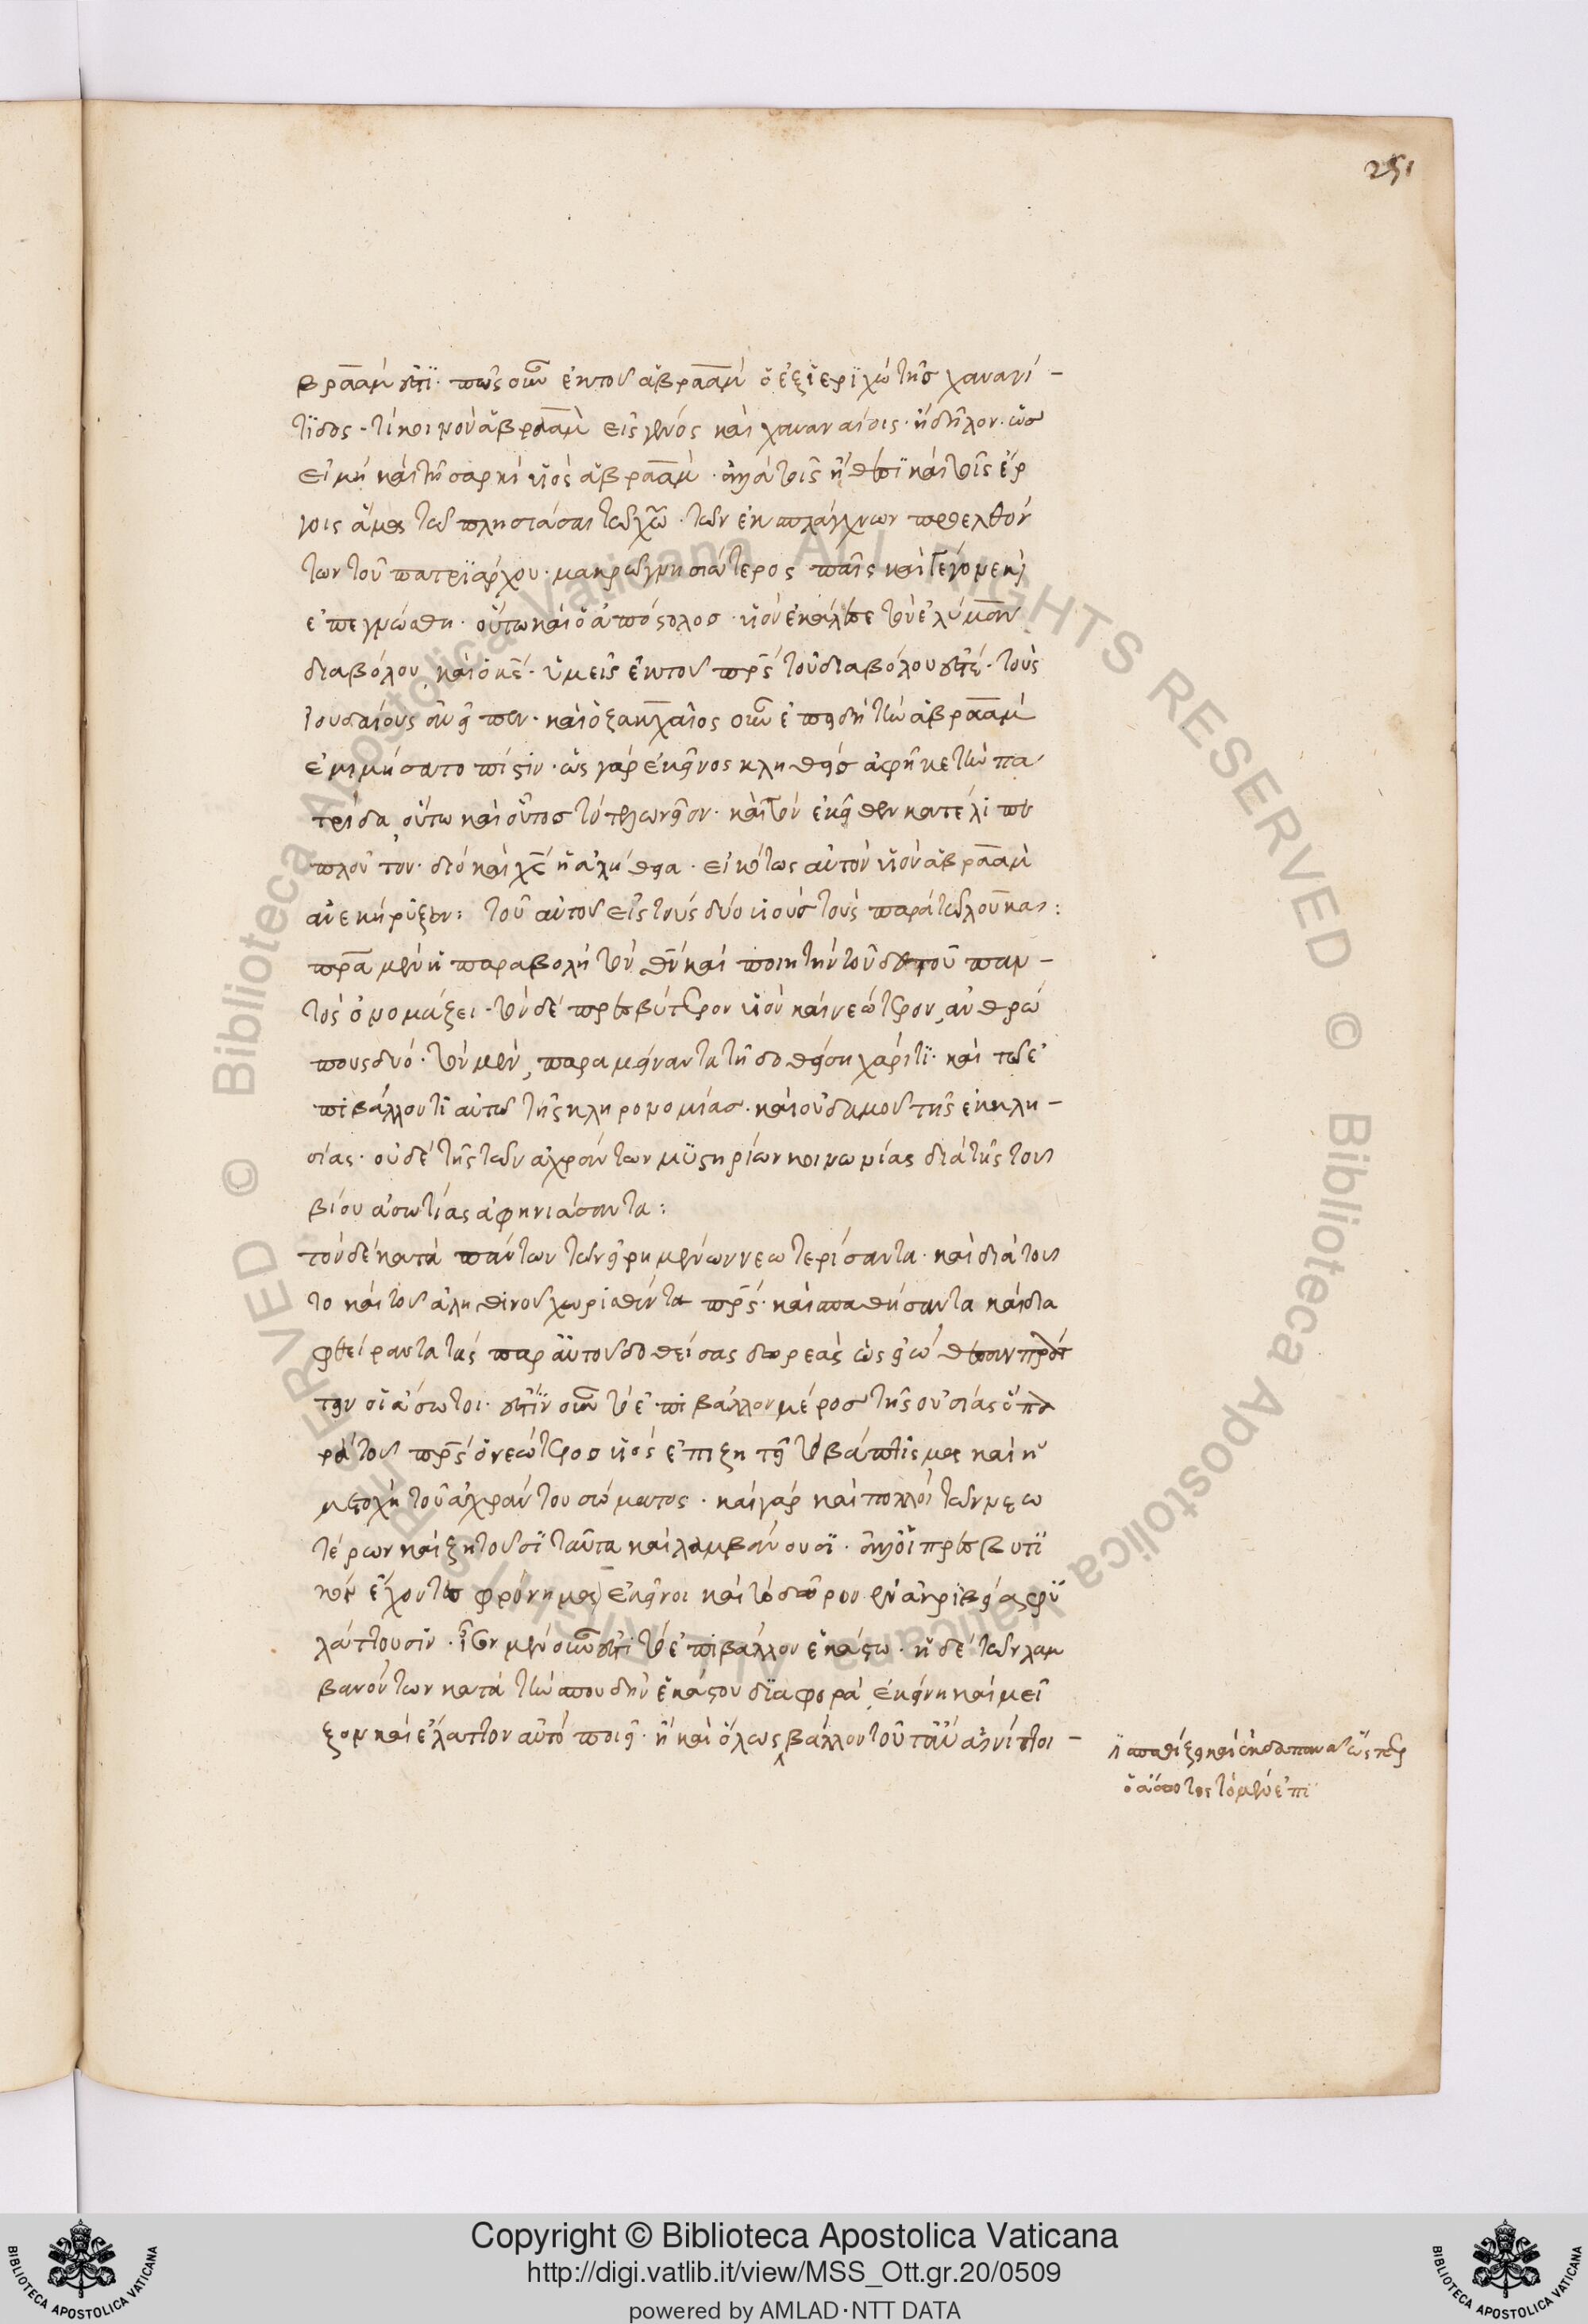 251
βραὰμ ἐστϊ· πῶς οὖν ἐκ τοῦ ἀβραὰμ ὁ ἐξ ϊεριχὼ τῆς χανανί-
τιδος· τί κοινὸν ἀβραὰμ εἰς γένος καὶ χαναναίοις· ἢ δῆλον· ὡς
εἰ μὴ καὶ τῇ σαρκὶ υἱὸς ἀβραάμ· ἀλλὰ τοῖς ἤθεσϊ καὶ τοῖς ἔρ
γοις ἅμα τῶ πλησιάσαι τῶ χῶ· τῶν ἐκ σπλάγχνων προελθόν
των τοῦ πατριάρχου· μακρῶ γνησιώτερος παῖς καὶ
ἐπεγνώσθη· οὕτω καὶ ὁ ἀπόστολος· υἱὸν ἐκάλεσε τὸν ἐλύμαν
διαβόλου, καὶ ὁ κς· ὑμεῖς ἐκ τοῦ πρς τοῦ διαβόλου ἐστέ· τοὺς
ϊουδαίους εἶπεν· καὶ ὁ ζακχαῖος οὖν ἐπειδὴ τὴν ἀβραὰμ
ἐμιμήσατο πίστιν· ὡς γὰρ ἐκεῖνος κληθεὶς ἀφῆκε τὴν πα
τρίδα οὕτω καὶ οὗτος τὸ τελωνεῖον· καὶ τὸν ἐκεῖθεν κατέλιπε
πλοῦτον· διὸ καὶ χς ἡ ἀλήθεια· εἰκότως αὐτὸν υἱὸν ἀβραὰμ
ἀνεκήρυξεν: τοῦ αὐτοῦ εἰς τοὺς δύο υἱοὺς τοὺς παρὰ τῶ λουκᾶ:
πρα μὲν ἡ παραβολὴ τὸν θν καὶ ποιητὴν τοῦδε τοῦ παν-
τὸς ὀνομάζει· τὸν δὲ πρεσβύτερον υἱὸν καὶ νεώτερον, ἀνθρώ
πους δύο· τὸν μὲν, παραμείναντα τῇ δοθείσῃ χάριτϊ· καὶ τῶ ἐ
πιβάλλοντι αὐτῶ τῆς κληρονομίας· καὶ οὐδαμοῦ τῆς ἐκκλη-
σίας· οὐδὲ τῆς τῶν ἀχράντων μυστηρίων κοινωνίας διὰ τῆς τοῦ
βίου ἀσωτίας ἀφηνιάσαντα:
τὸν δὲ κατὰ πάντων τῶν εἰρημένων νεωτερίσαντα· καὶ διὰ τοῦ
το καὶ τοῦ ἀληθινοῦ χωρισθέντα πρς· καὶ σπαθήσαντα καὶ δια
φθείραντα τὰς παρ αὐτοῦ δοθείσας δωρεὰς ὡς εἰώθασιν πράτ
τειν οἱ ἄσωτοι· ἔστϊν οὖν τὸ ἐπιβάλλον μέρος τῆς οὐσίας ὃ πα
ρὰ τοῦ πρς ὁ νεώτερος υἱὸς ἐπιζητεῖ τὸ βάπτισμα καὶ ἡ
μετοχὴ τοῦ ἀχράντου σώματος· καὶ γὰρ καὶ πολλοὶ τῶν νεω
τέρων καὶ ζητοῦσϊ ταῦτα καὶ λαμβάνουσϊ· ἀλλ οἱ πρεσβυτϊ
κὸν ἔχοντες φρόνημα, ἐκεῖνοι καὶ τὸ δῶρον ἐν ἀκριβείᾳ φυ
λάττουσϊν· ἴσον μὲν οὖν ἐστὶ τὸ ἐπιβάλλον ἑκάστω· ἡ δὲ τῶν λαμ
βανόντων κατὰ τὴν σπουδὴν ἑκάστου διαφορὰ, ἐκείνη καὶ μεῖ
ζον καὶ ἔλαττον αὐτὸ ποιεῖ· ἢ καὶ ὅλως βάλλον τοῦτ αἰνίττοι-
σπαθίζει καὶ ἐκδαπανᾶ ὥσπερ
ὁ ἄσωτος τὸ μὲν ἐπϊ
Copyright © Biblioteca Apostolica Vaticana
http://digi.vatlib.it/view/MSS_Ott.gr.20/0509
powered by AMLAD·NTT DATA